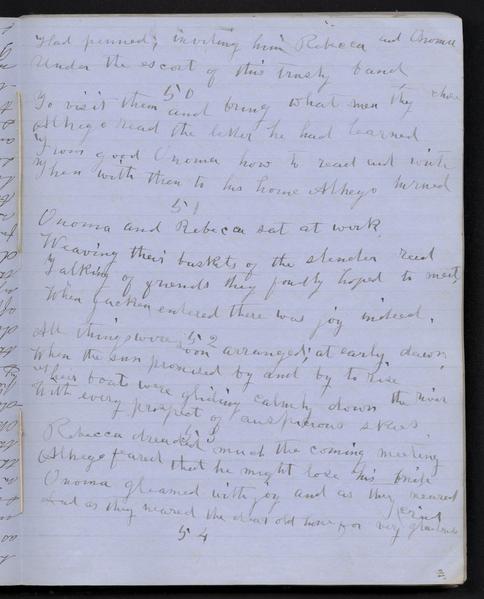 Had penned; inviting him Rebecca and Onoma
Under the escort of this trusty band
50
To visit them and bring what men they chose
Alhego read the letter he had learned
From good Onoma how to read and write
Then with them to his home Alhego turned
51
Onoma and Rebecca sat at work
Weaving their baskets of the slender reed
Talking of friends they fondly hoped to meet,
When entered there was joy indeed.
52
All things were soon arranged; at early dawn
When the sun promised by and by to rise
Their boat were gliding calmly down the river
With every prospect of auspicious skies
53
Rebecca dreaded much the coming meeting
Alhego feared that he might lose his
Onoma gleamed with joy and as they neared
And as they neared the dear old home for very gladness
54